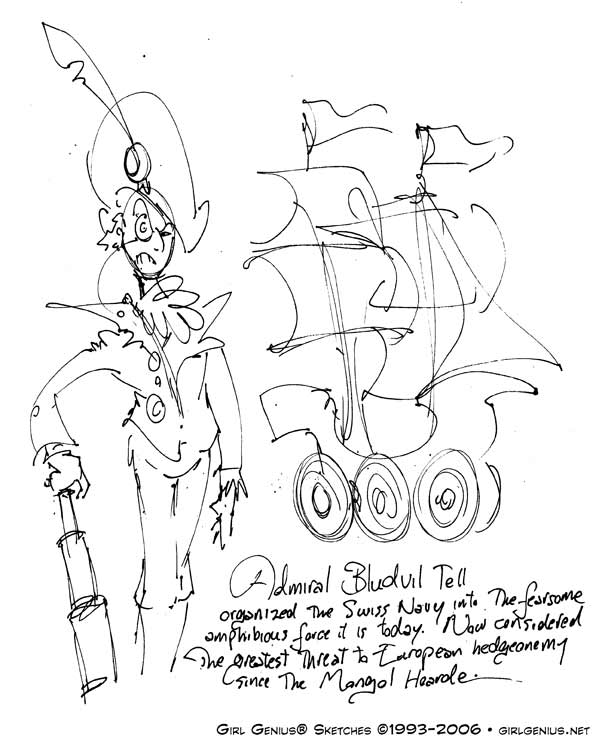 Admiral Bludvil Tell
organized the Swiss Navy into The fearsome
amphibious force it is today. Now considered
The greatest threat to European hedgeonemy
since The Mangol Hoarde.
Girl Genius® Sketches ©1993-2006 • girlgenius.net